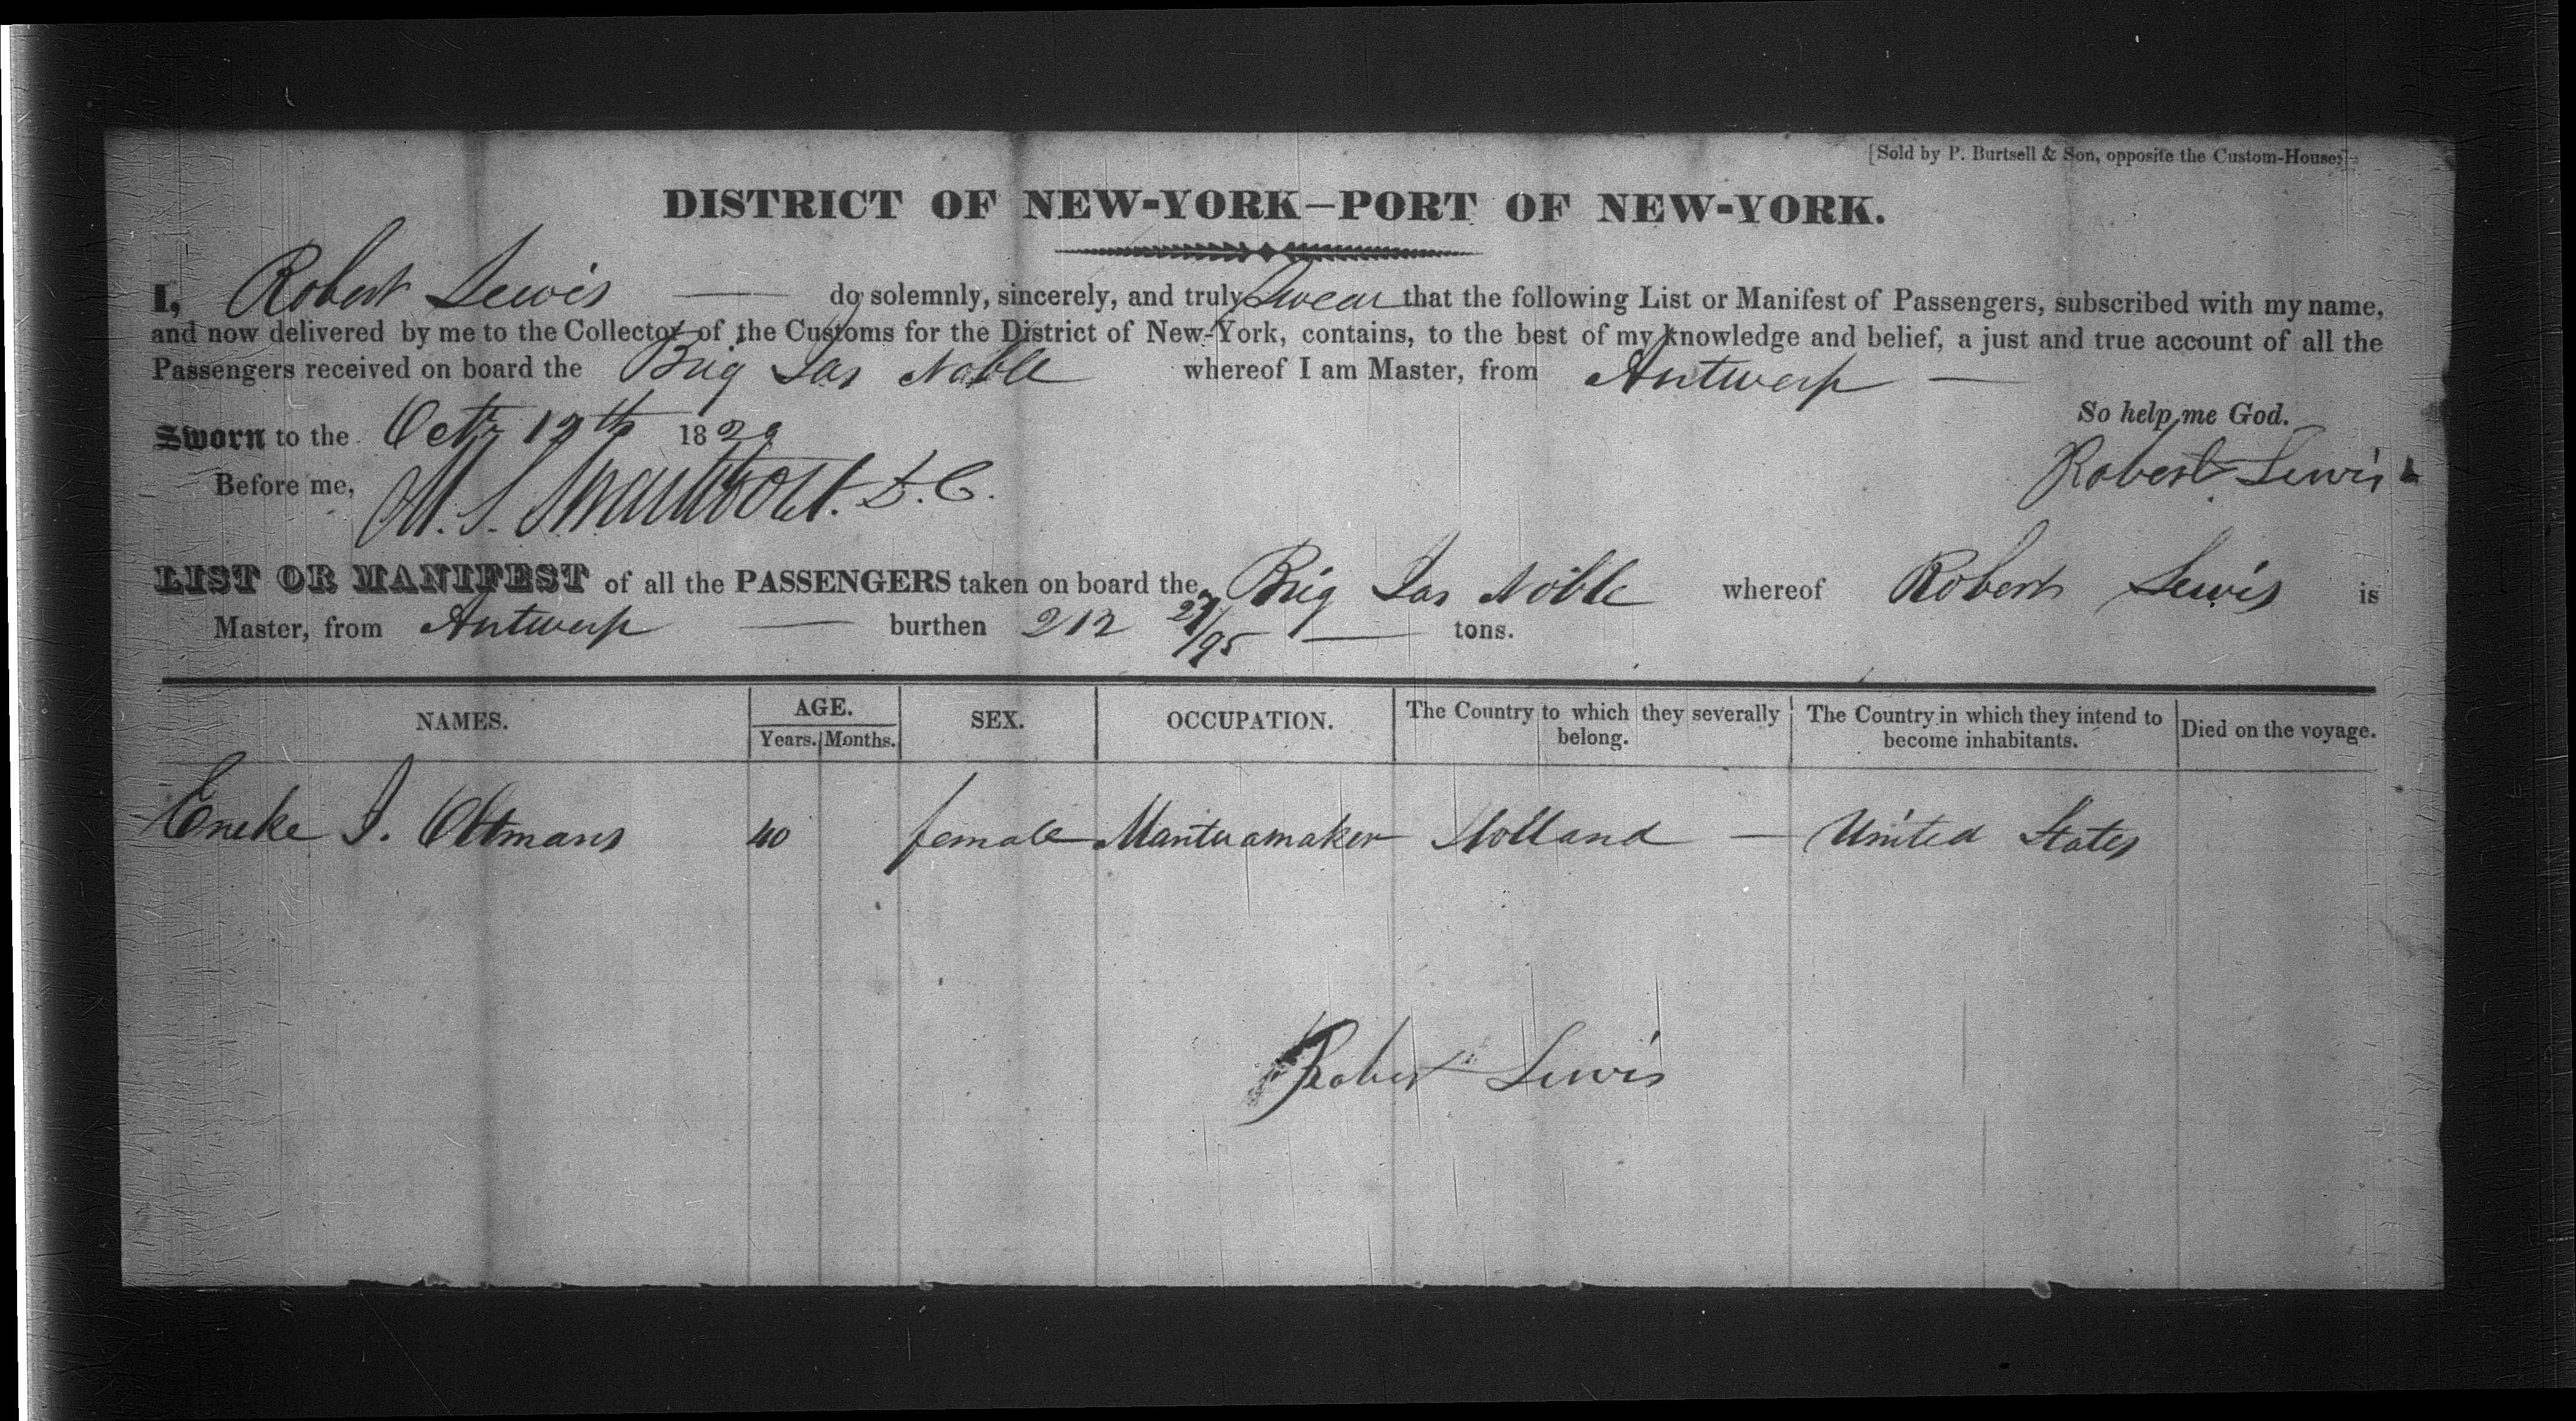 [Sold by P. Burtsell & Son, opposite the Custom-House.]
DISTRICT OF NEW-YORK—PORT OF NEW-YORK.
I, Robert Lewis — do solemnly, sincerely, and truly Swear that the following List or Manifest of Passengers, subscribed with my name,
and now delivered by me to the Collector of the Customs for the District of New-York, contains, to the best of my knowledge and belief, a just and true account of all the
Passengers received on board the Brig Jas Noble whereof I am Master, from Antwerp —
So help me God.
Sworn to the Octr 12th 1829
Robert Lewis
Before me, M. S. Swartwout. D.C.
LIST OR MANIFEST of all the PASSENGERS taken on board the Brig Jas Noble whereof Robert Lewis is
Master, from Antwerp — burthen 212 27/95 — tons.
NAMES. AGE. Years. Months. SEX. OCCUPATION. The Country to which they severally belong. The Country in which they intend to become inhabitants. Died on the voyage.
Eneke J. Oltmans 40 female Mantuamaker Holland — United States
Robert Lewis